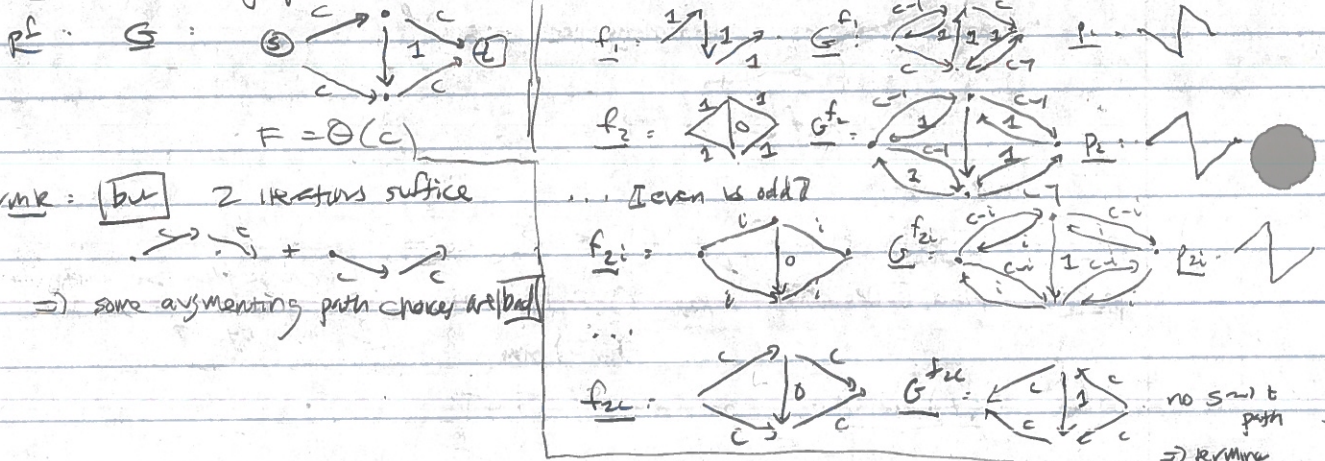 pf. G :
c c
s 1 t
c c
F = Θ(c)
rmk : but 2 iterations suffice
c c + c c
⇒ some augmenting path choices are bad
f₁ = 1 1 G^f₁ : c-1 c 1 1 1 c c-1 p₁ =
f₂ = 1 1 0 1 1 G^f₂ = c-1 c-1 1 1 c-1 1 1 c-1 p₂ =
... I even is odd?
f₂ᵢ = i i 0 i i G^f₂ᵢ = c-i c-i i i 1 c-i c-i i i p₂ᵢ =
...
f₂c = c c 0 c c G^f₂c = c c 1 c c no s⇝t
path